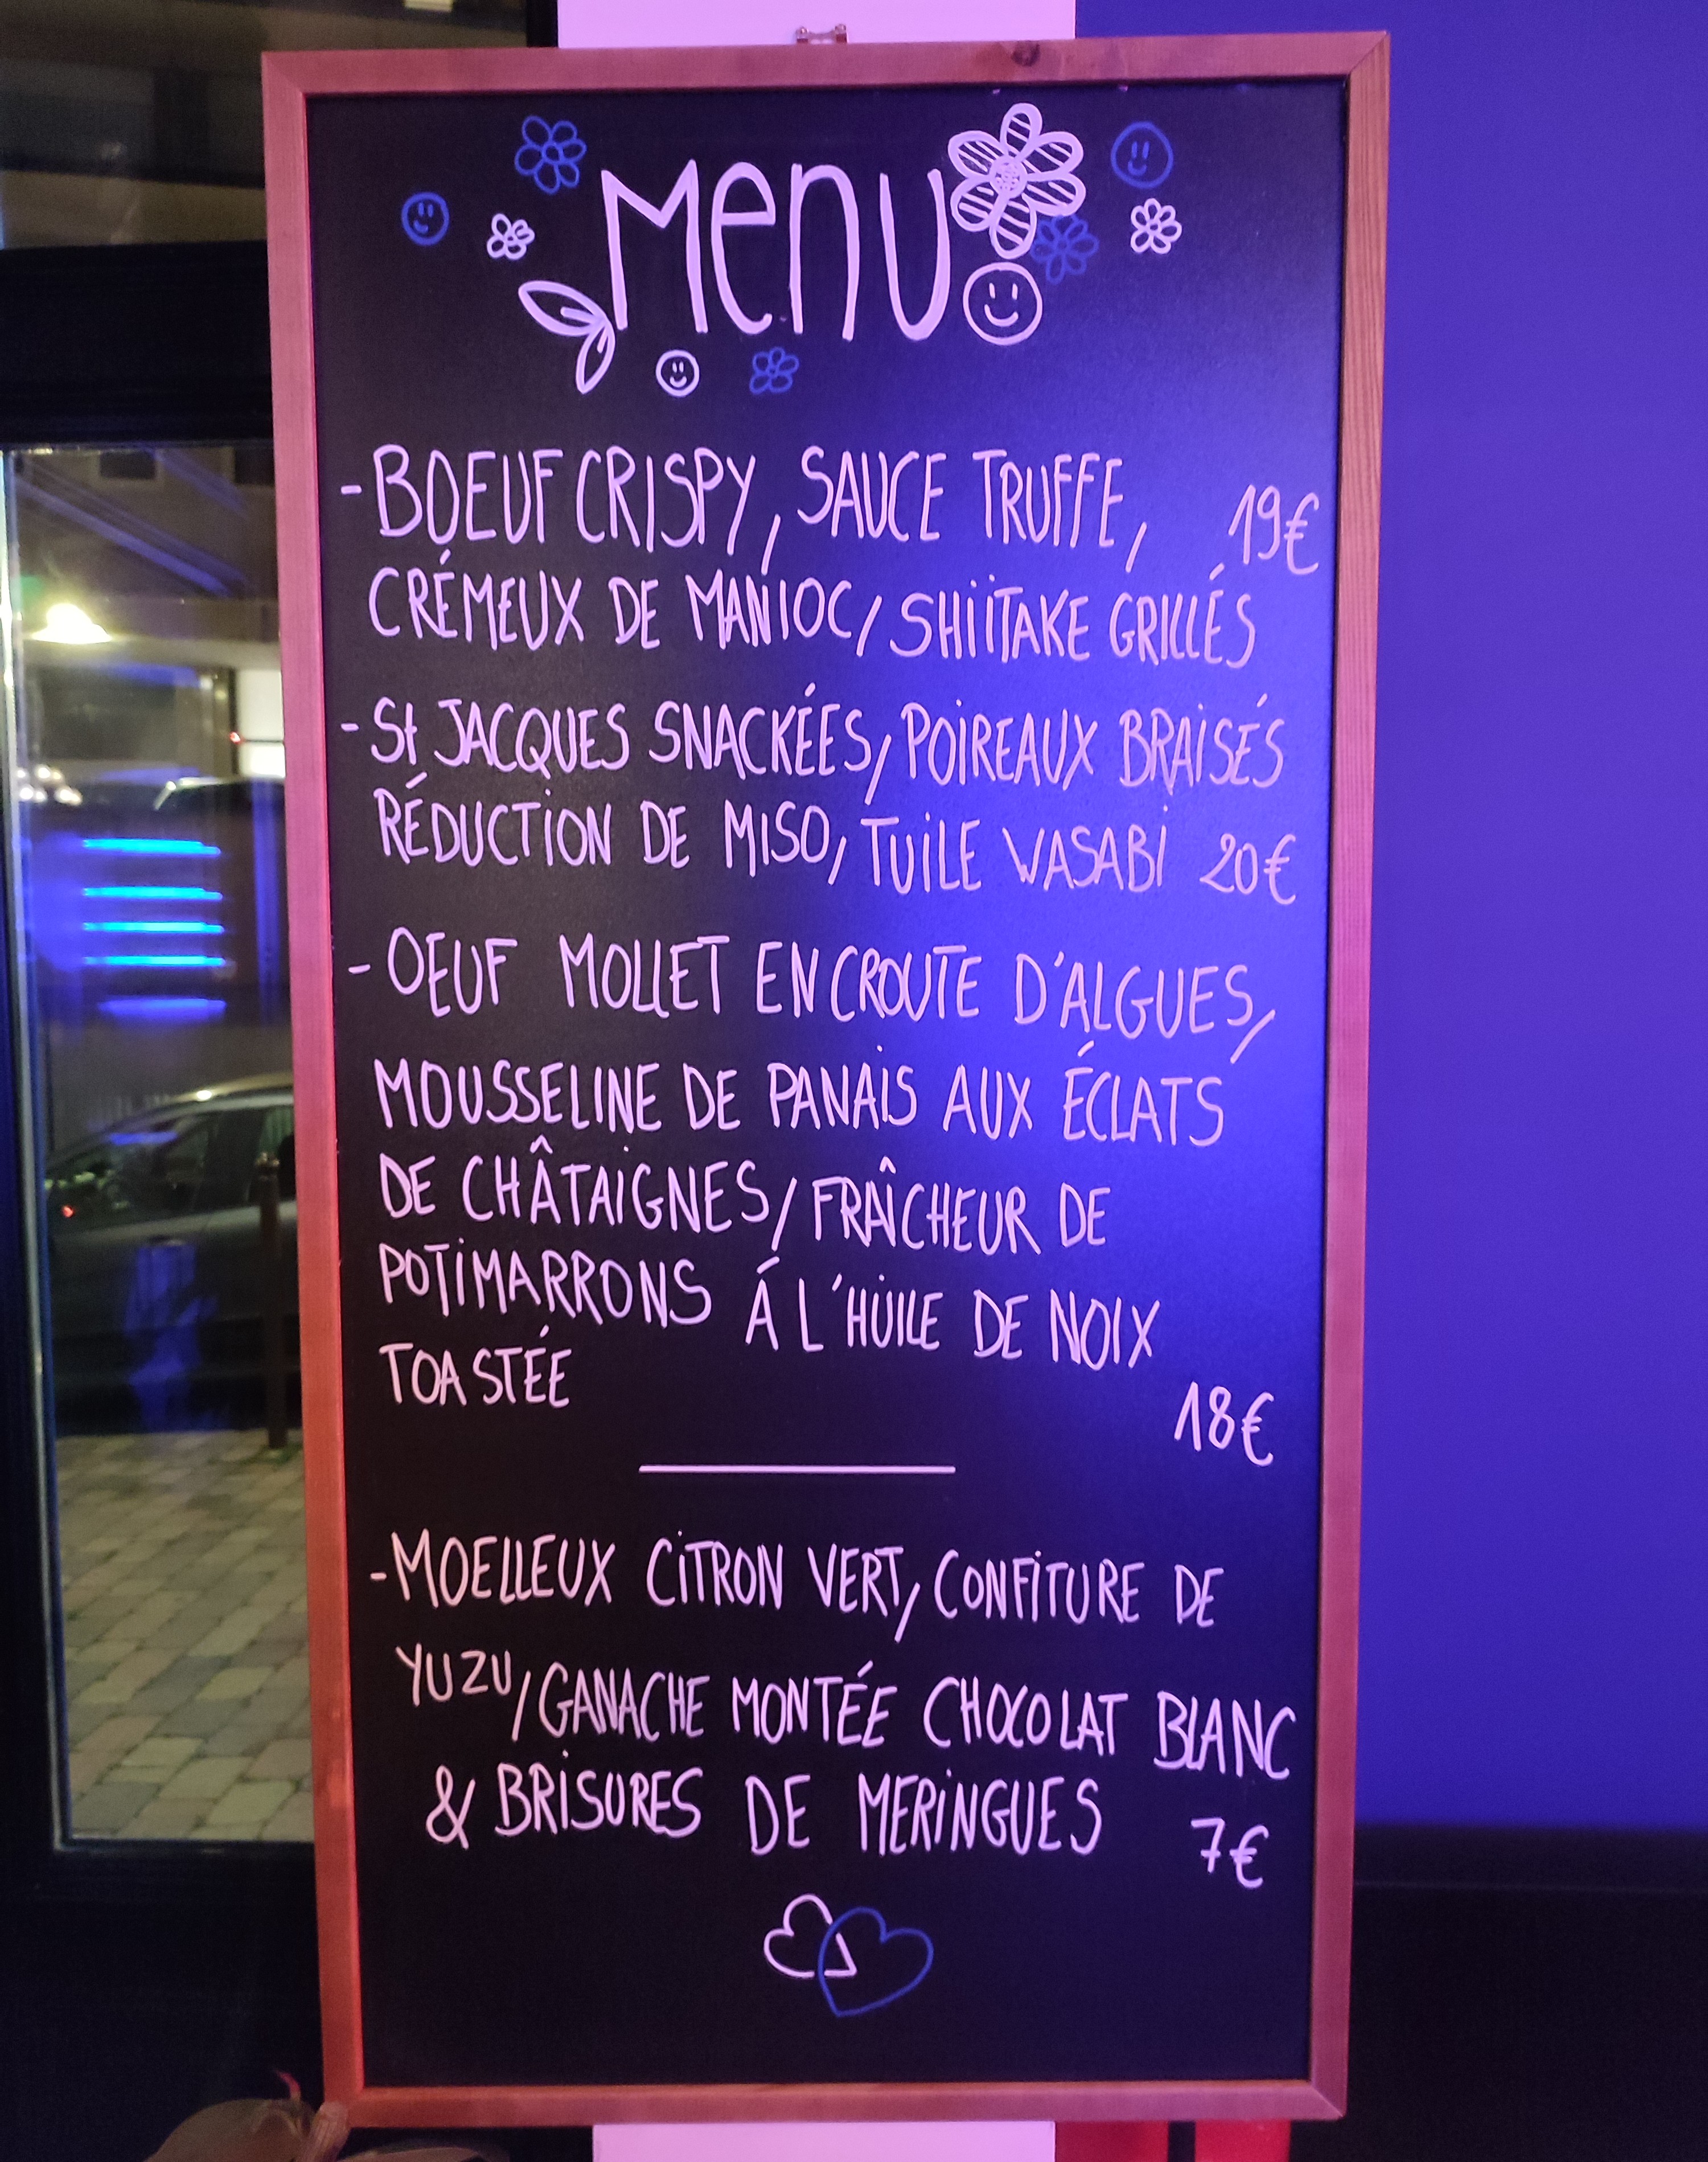 Menu
- BOEUF CRISPY, SAUCE TRUFFE, 19€
CRÉMEUX DE MANIOC, SHIITAKE GRILLÉS
- St JACQUES SNACKÉES, POIREAUX BRAISÉS
RÉDUCTION DE MISO, TUILE WASABI 20€
- OEUF MOLLET EN CROUTE D'ALGUES,
MOUSSELINE DE PANAIS AUX ÉCLATS
DE CHÂTAIGNES, FRAÎCHEUR DE
POTIMARRONS Á L'HUILE DE NOIX
TOASTÉE
18€
- MOELLEUX CITRON VERT, CONFITURE DE
YUZU, GANACHE MONTÉE CHOCOLAT BLANC
& BRISURES DE MERINGUES 7€